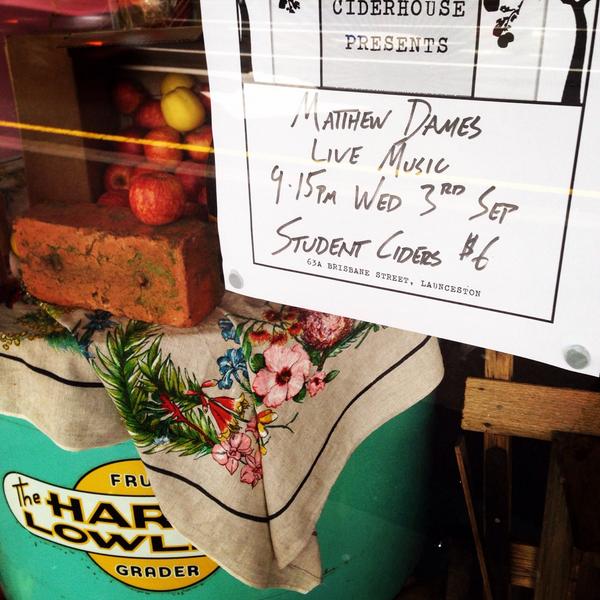 CIDERHOUSE
PRESENTS
MATTHEW DAMES
LIVE MUSIC
9.15PM WED 3RD SEP
STUDENT CIDERS $6
63A BRISBANE STREET, LAUNCESTON
FRU
The HAR
LOWL
GRADER